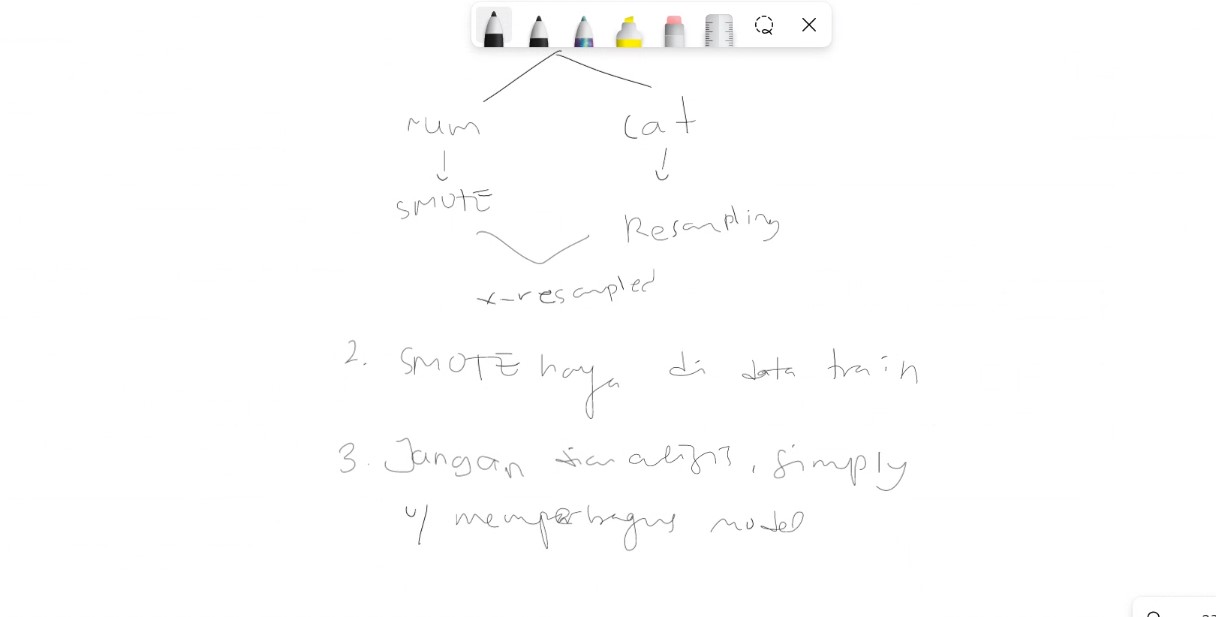 num
cat
SMOTE
Resampling
x-resampled
2. SMOTE hanya di data train
3. Jangan analisis, simply
u/ memperbagus model